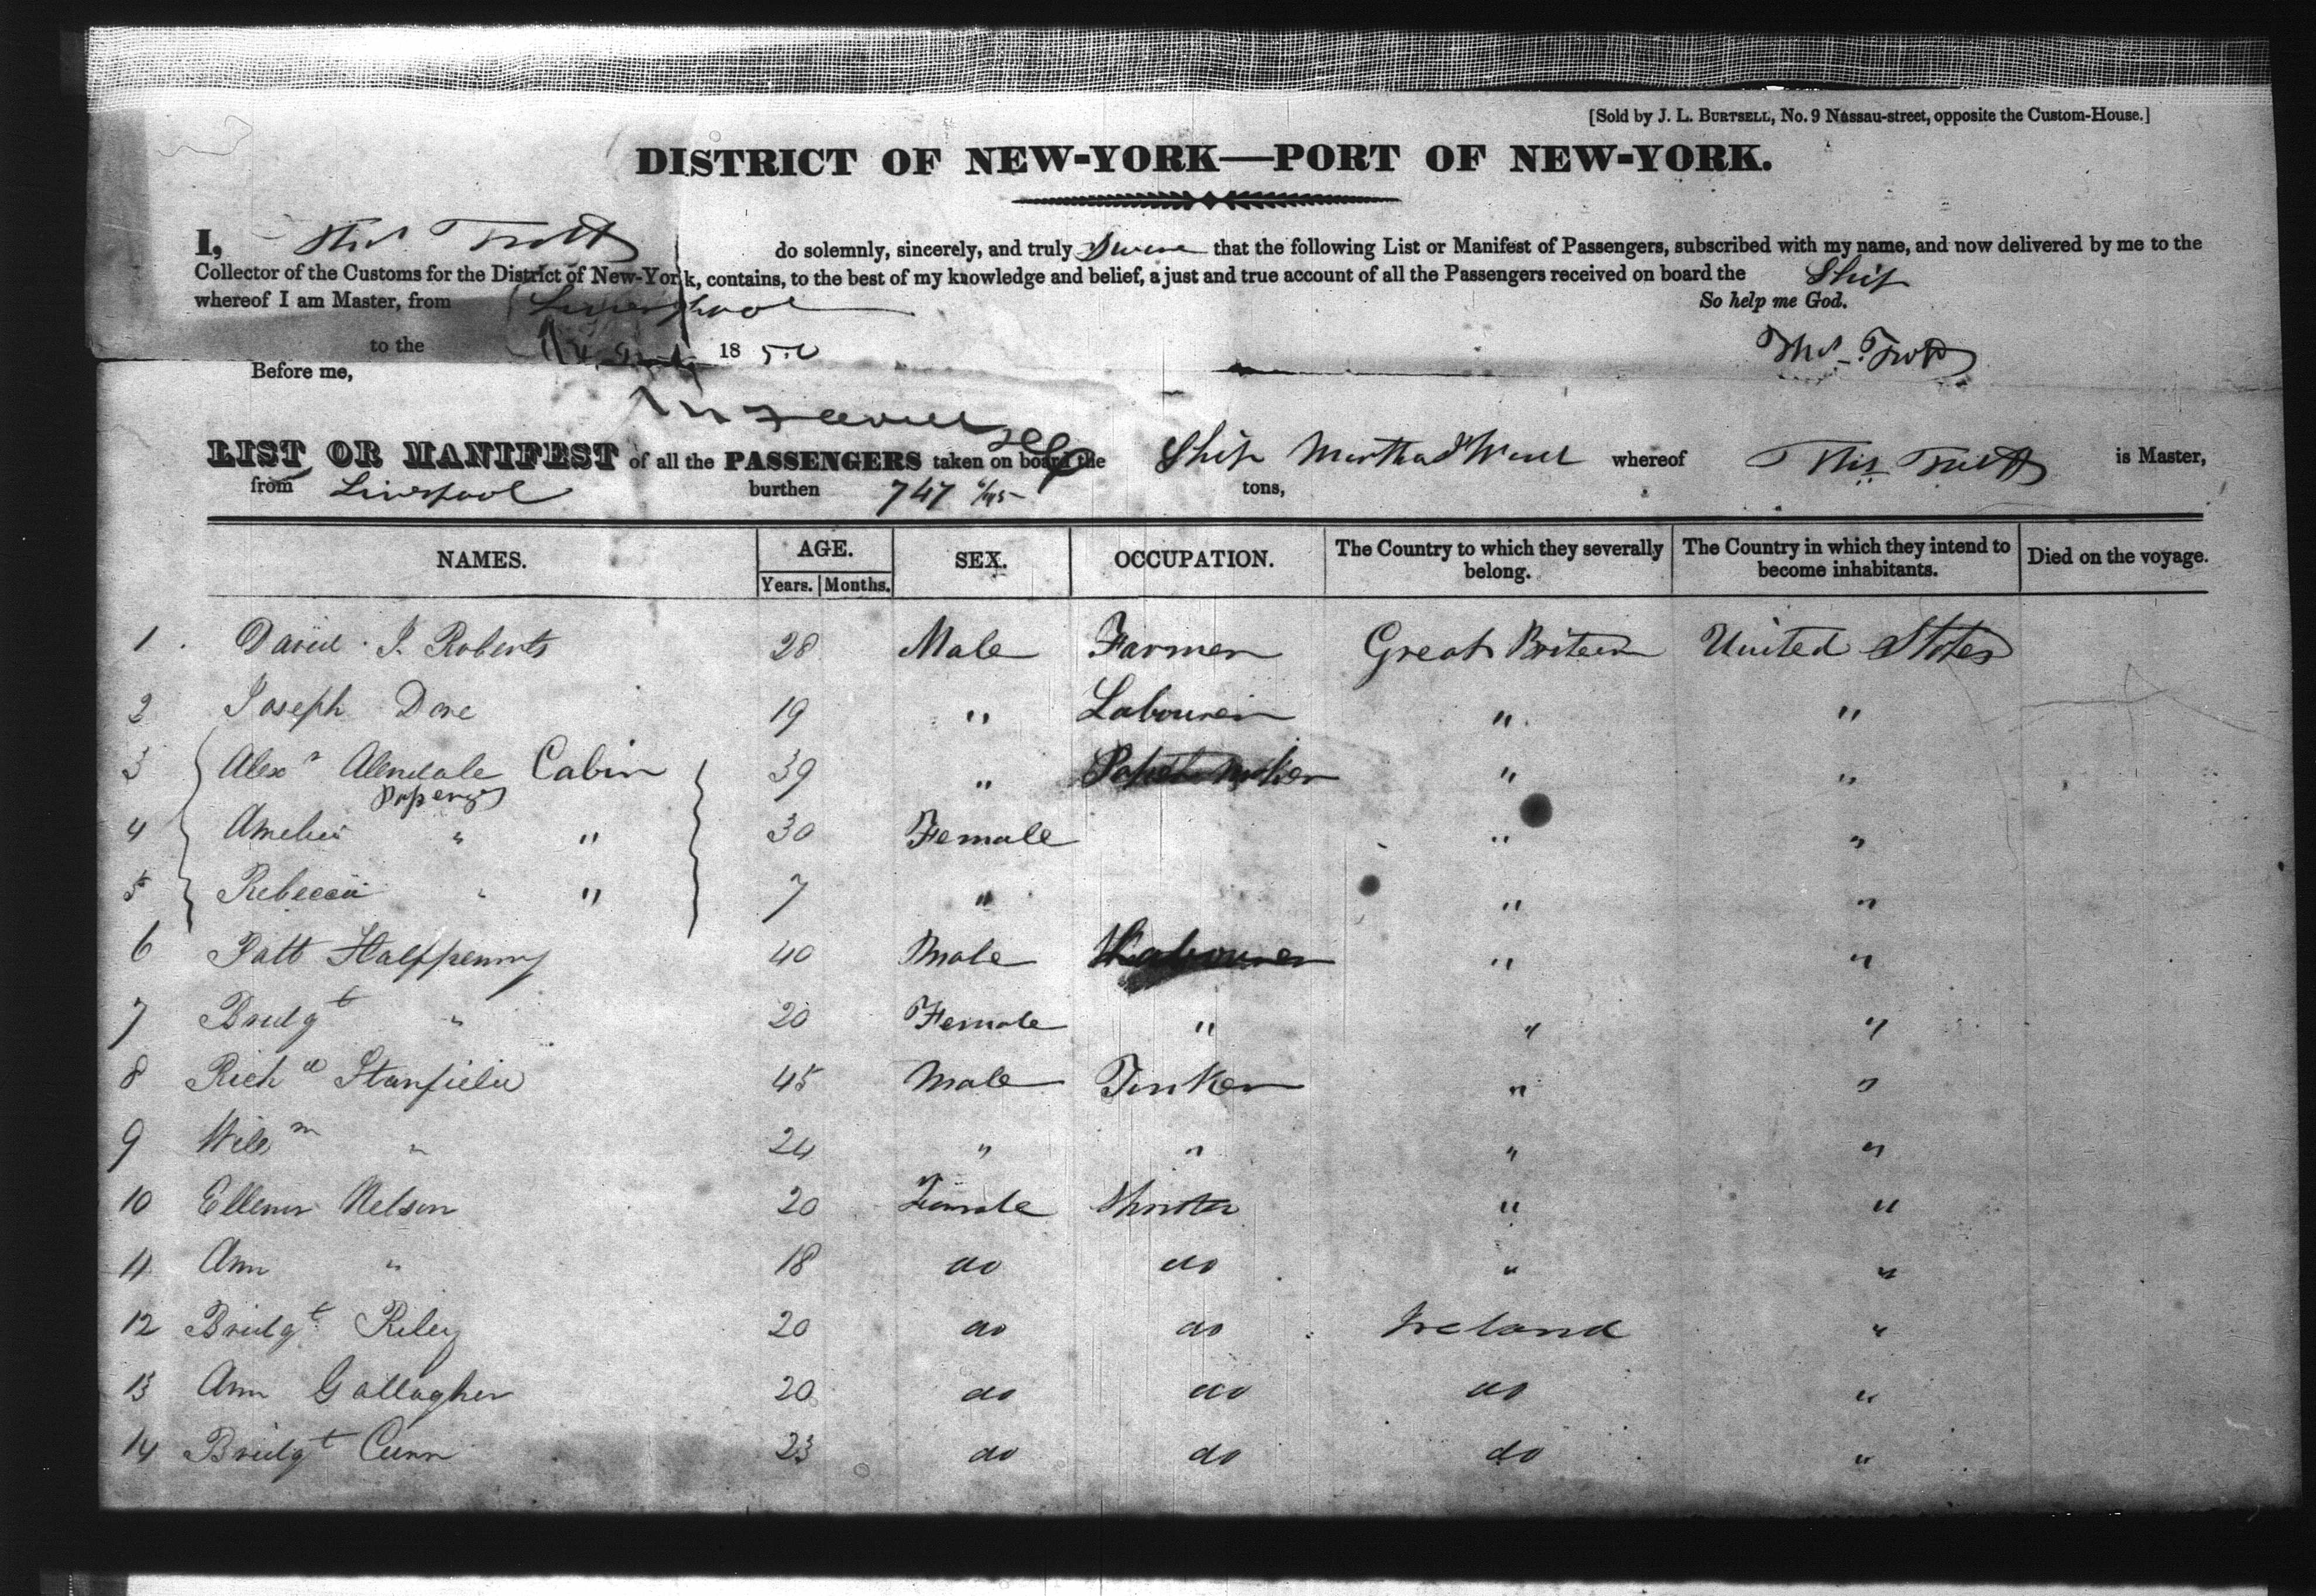 [Sold by J. L. BURTSELL, No. 9 Nassau-street, opposite the Custom-House.]
DISTRICT OF NEW-YORK—PORT OF NEW-YORK.
I, Thos Trott do solemnly, sincerely, and truly Swear that the following List or Manifest of Passengers, subscribed with my name, and now delivered by me to the
Collector of the Customs for the District of New-York, contains, to the best of my knowledge and belief, a just and true account of all the Passengers received on board the Ship
whereof I am Master, from Liverpool So help me God.
to the 1850 Thos Trott
Before me,
LIST OR MANIFEST of all the PASSENGERS taken on board the Ship Martha J Ward whereof Thos Trott is Master,
from Liverpool burthen 747 /95 tons,
NAMES. AGE. SEX. OCCUPATION. The Country to which they severally belong. The Country in which they intend to become inhabitants. Died on the voyage.
Years. Months.
1 David J. Roberts 28 Male Farmer Great Britain United States
2 Joseph Dore 19 " Labourer " "
3 Alexr Allendale Cabin 39 " " "
Passengers
4 Amelia " " 30 Female " "
5 Rebecca " " 7 " " "
6 Patt Halfpenny 40 Male Labourer " "
7 Bridgt " 20 Female " " "
8 Richd Stanfield 45 Male Tinker " "
9 Willm " 24 " " " "
10 Ellenor Nelson 20 Female " "
11 Ann " 18 do do " "
12 Bridgt Riley 20 do do Ireland "
13 Ann Gallagher 20 do do do "
14 Bridgt Cunn 23 do do do "